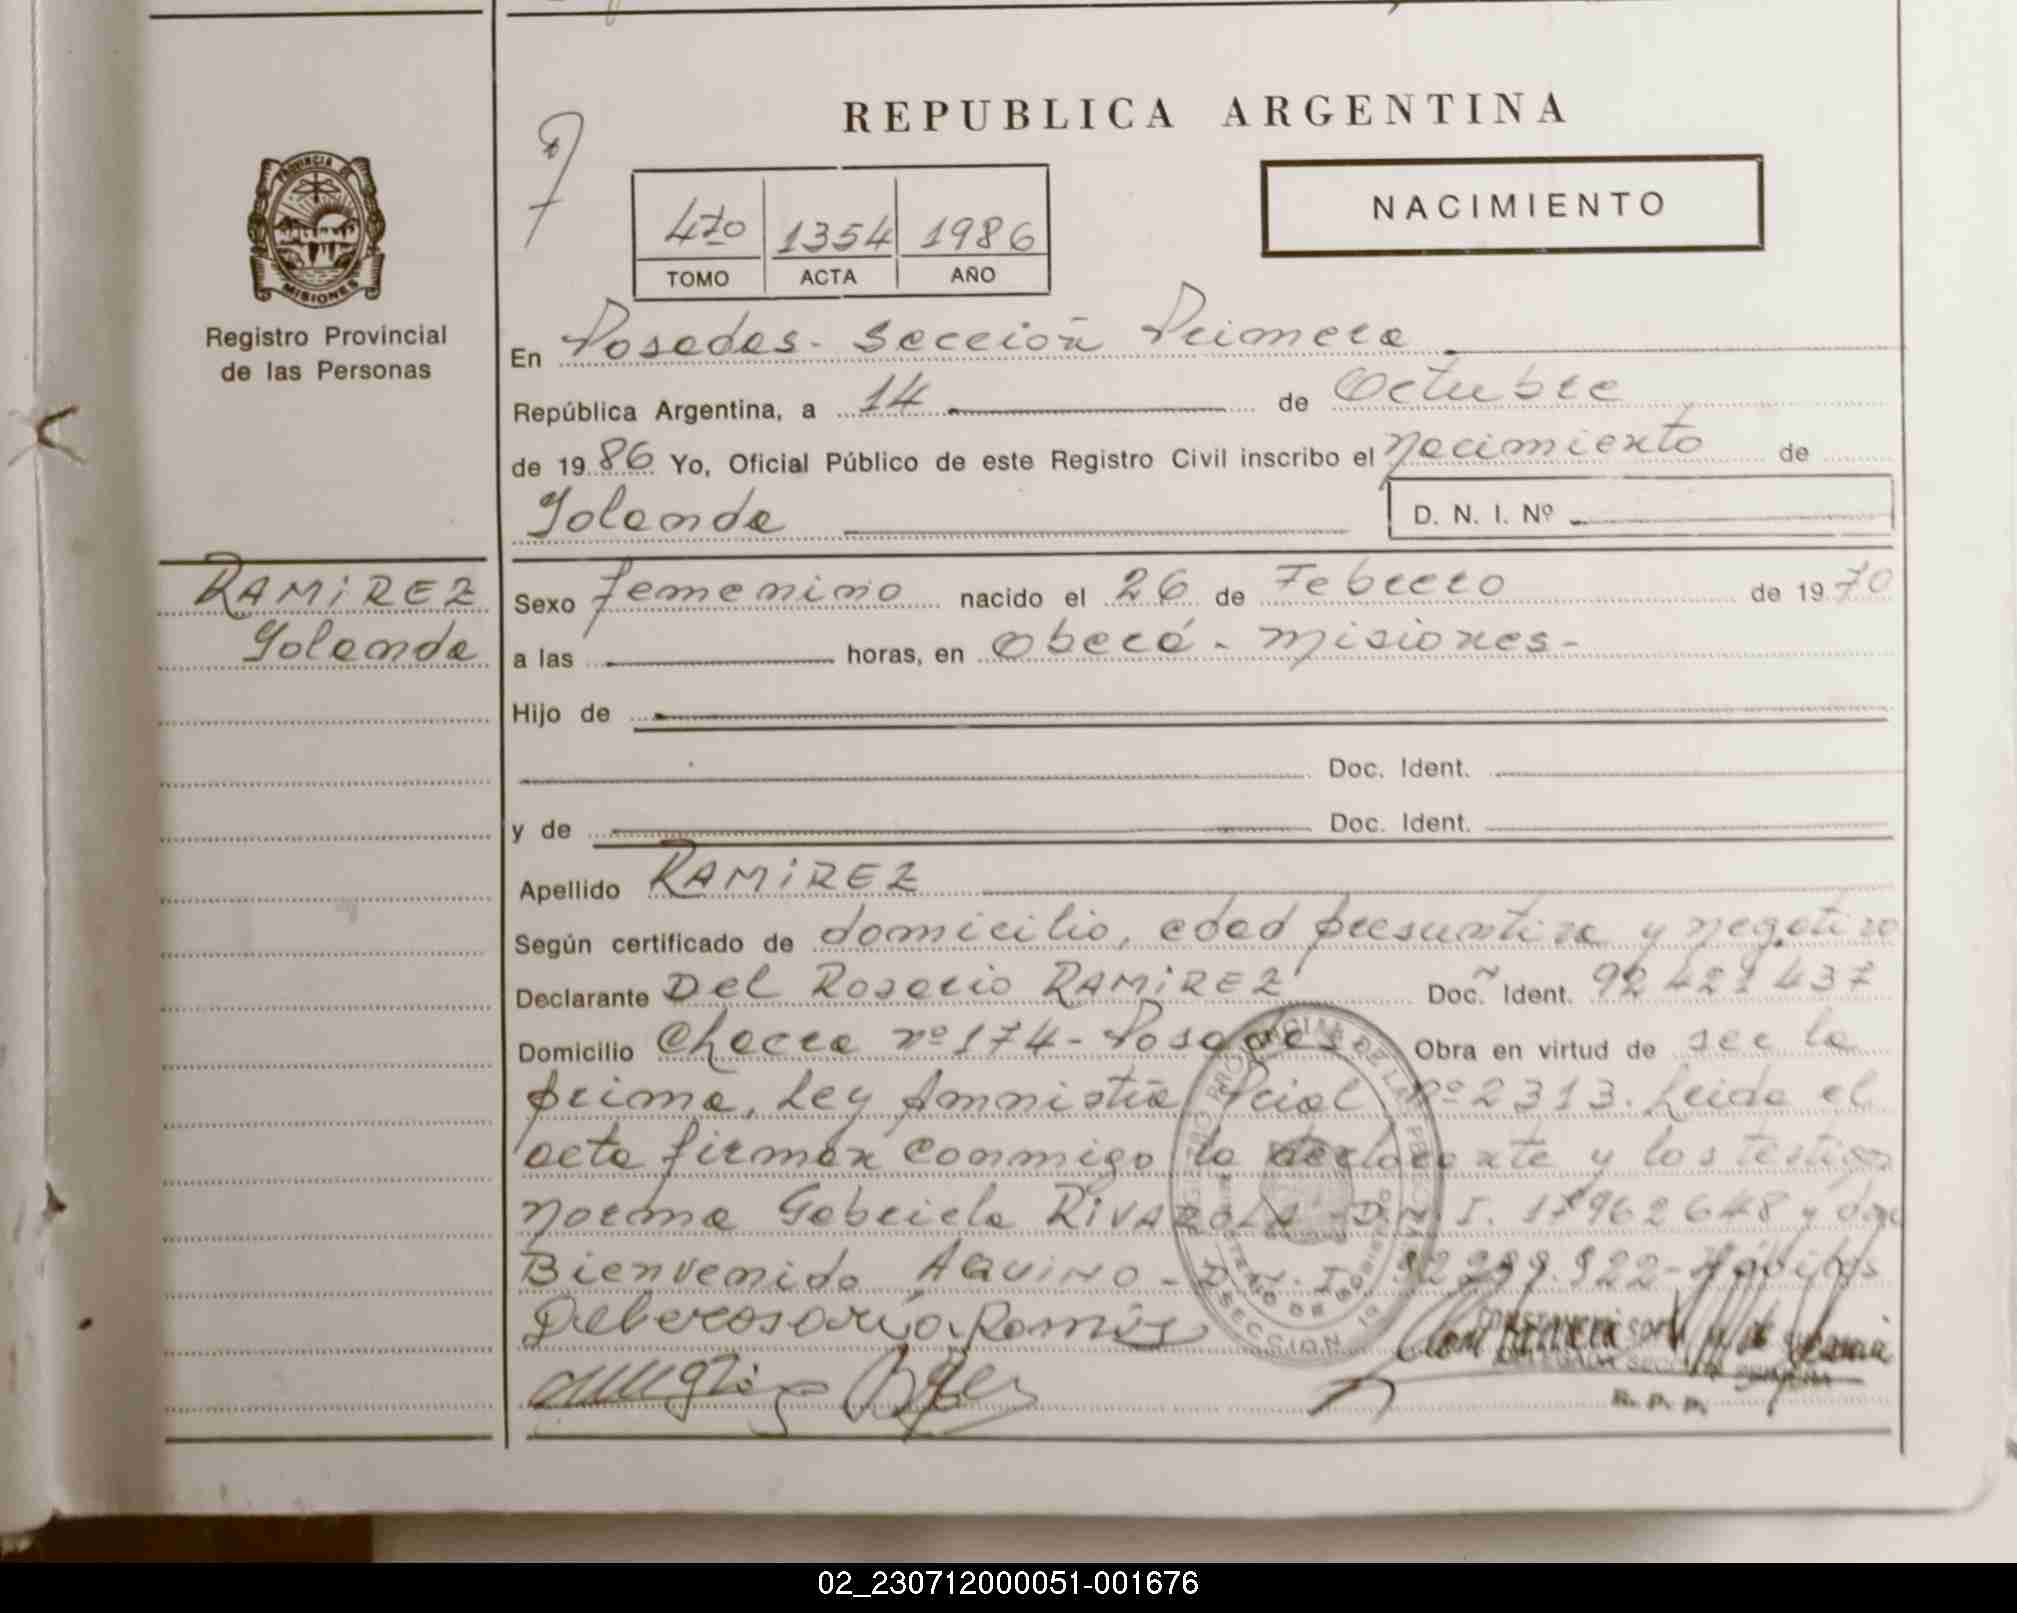 REPUBLICA ARGENTINA
NACIMIENTO
4to 1354 1986
TOMO ACTA AÑO
PROVINCIA DE MISIONES
Registro Provincial
de las Personas
En Posadas - Sección Primera
República Argentina, a 14 de Octubre
de 1986 Yo, Oficial Público de este Registro Civil inscribo el Nacimiento de
Yolanda D. N. I. Nº
RAMIREZ
Yolanda
Sexo femenino nacido el 26 de Febrero de 1970
a las horas, en Oberá - Misiones -
Hijo de
Doc. Ident.
y de Doc. Ident.
Apellido RAMIREZ
Según certificado de domicilio, edad presuntiva y negativo
Declarante Del Rosario RAMIREZ Doc. Ident. 92 421 437
Domicilio Chacra nº 174 - Posadas Obra en virtud de ser la
prima, Ley Amnistía Pcial nº 2313. Leida el
acta firman conmigo la declarante y los testigos
Norma Gabriela RIVAROLA D.N.I. 17962648 y don
Bienvenido AQUINO - D.N.I. 92.299.922 - Hábiles
R. P. P.
02_230712000051-001676